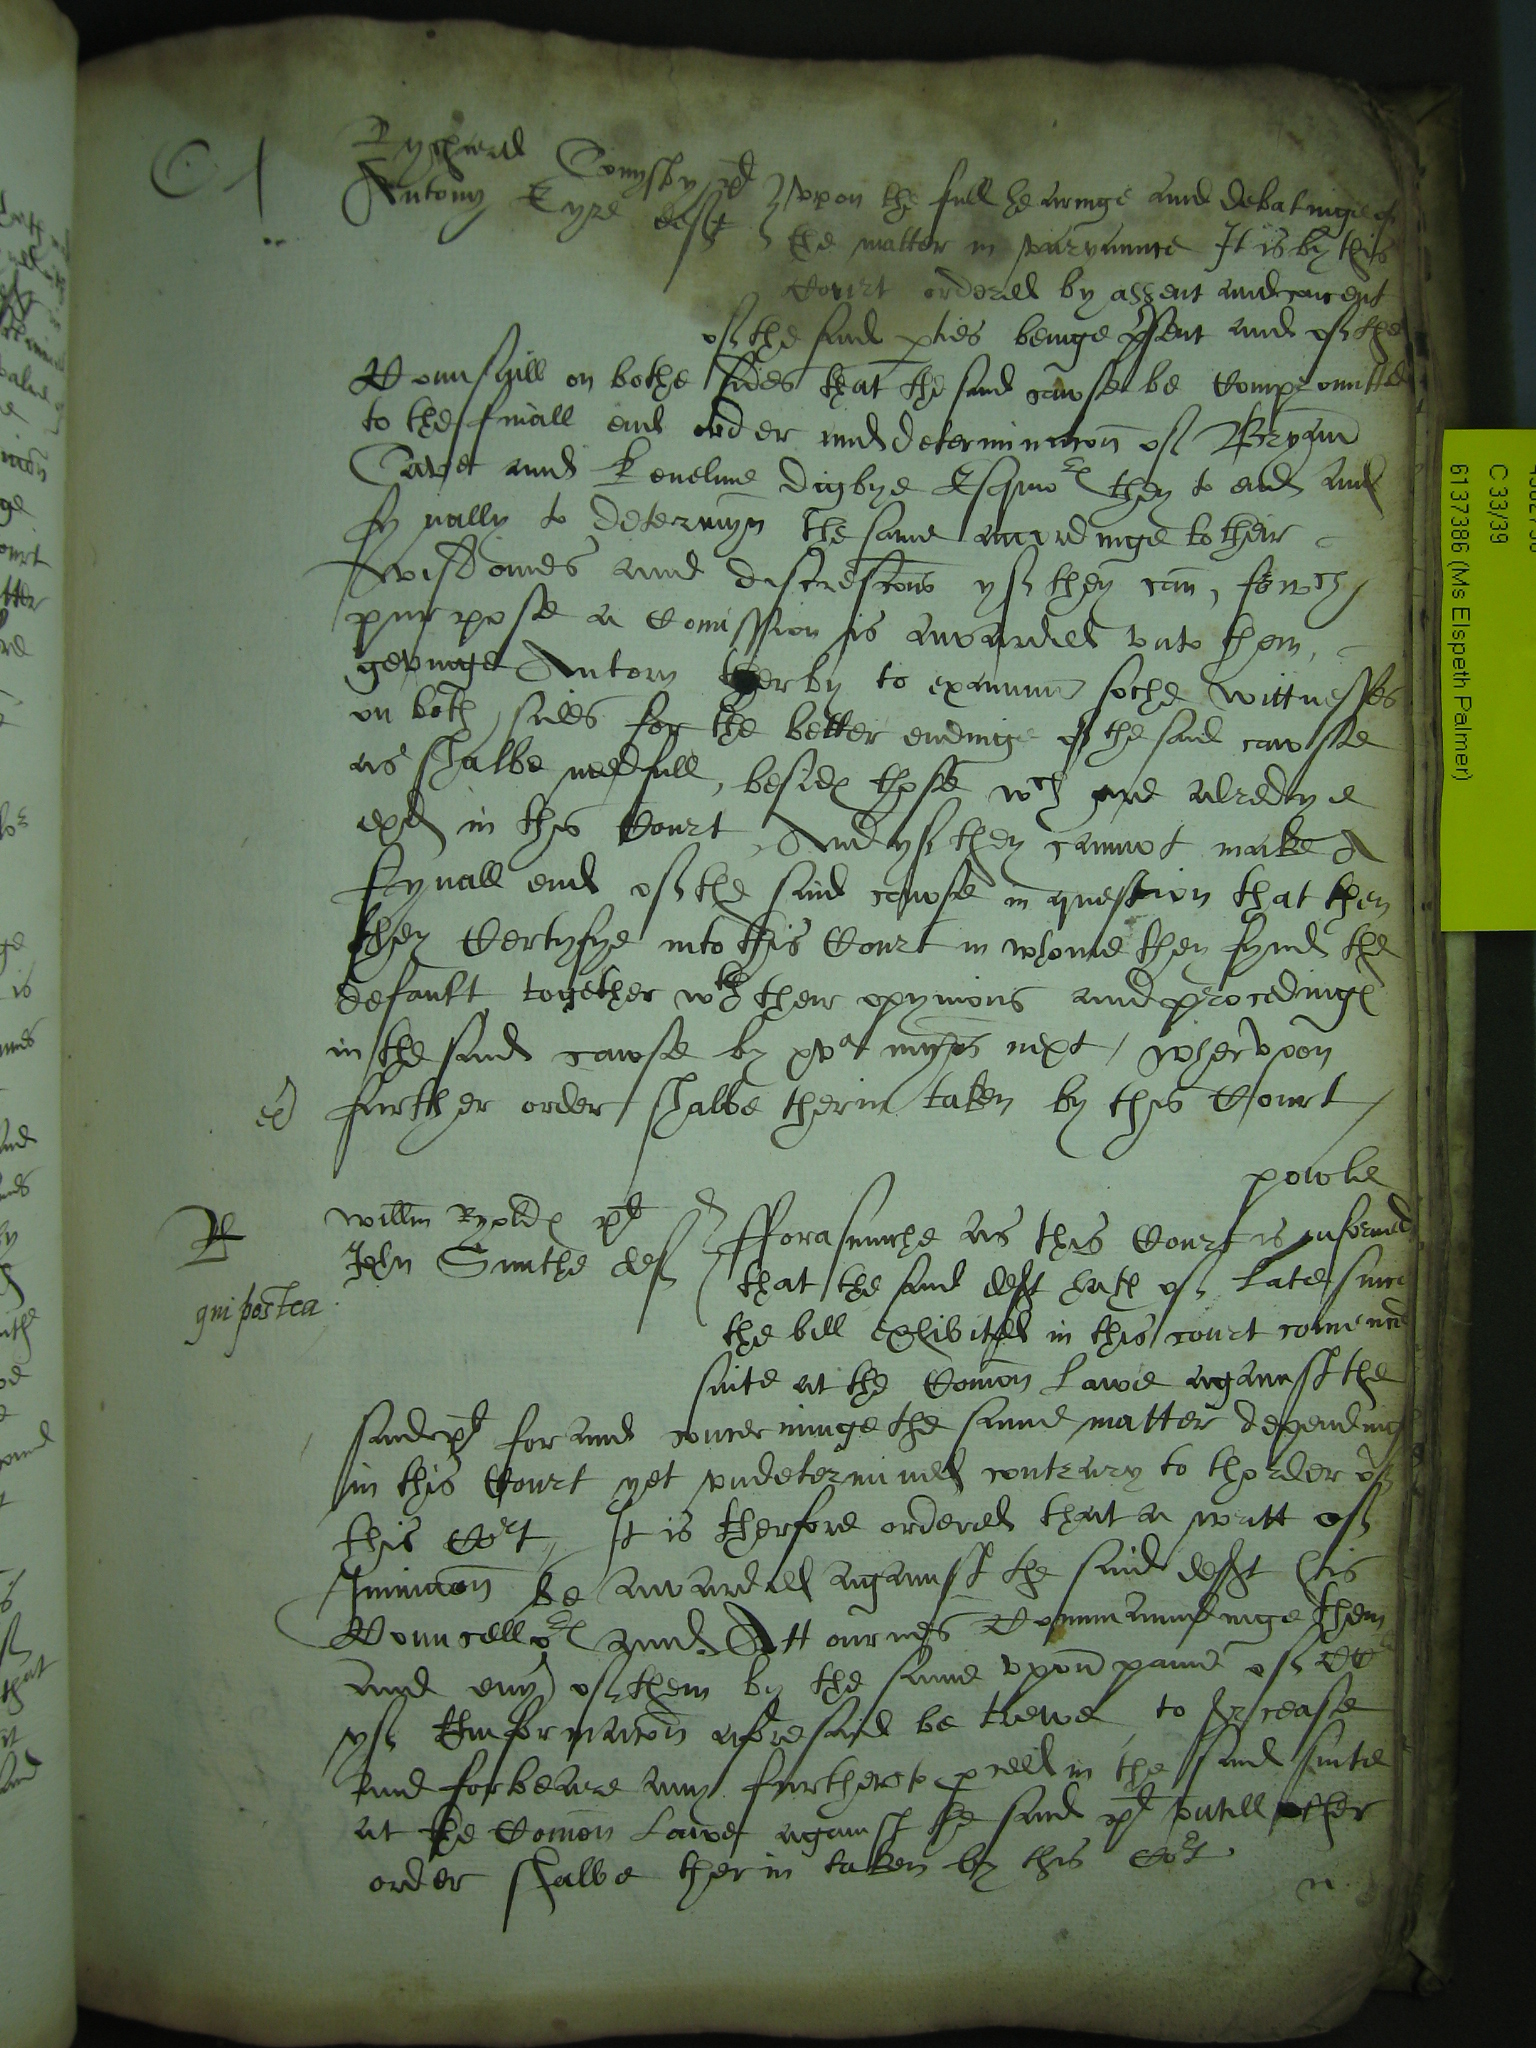 C
Rychard Conysby pl
Antony Eyre defft
vpon the full hearinge and debatinge of
the matter in varyaunce It is by this
Court ordered by assent and concent
of the said pties beinge psent and of the
Counsaill on bothe sides that the said cawse be Compromitted
to the finall end order and determinacon of Bryan
Cave and Kenelme Digbye Esquiors they to end and
fynally to determyn the same accordinge to their
wisdomes and discrescons yf they can, for wch
purpose a Comission is awarded vnto them,
gevinge Autory therby to examine soche wittnesses
on both sides for the better endinge of the said cawse
as shalbe nedfull, besides those wch are alredye
exed in this Court, And yf they cannot make A
Fynall end of the said cawse in question that then
they Certyfye into this Court in whome they fynd the
default together wth their opynions and procedinges
in the said cawse by next / whervpon
further order shalbe therin taken by this Court /
ex
powle
R
Willm pl
John Smithe def
qui postea
Fforasmuche as this Court is informed
that the said defft hath of late since
the bill exhibited in this court comenced
suite at the Comon Lawe agaynst the
said pl for and concerninge the same matter dependinge
in this Court yet vndetermined contrary to thorder of
this Cort, It is therfore ordered that a writt of
Iniuncon be awarded agaynst the said defft his
Councellors and Attournes Commaundinge them
and eny of them by the same vpon paine of CC
yf thinformacon aforesaid be trewe, to surcease
and forbeare any further to pceed in the said suite
at the Comon Lawe against the said pl vntill other
order shalbe therin taken by this Cort
n
C 33/39
6137386 (Ms Elspeth Palmer)